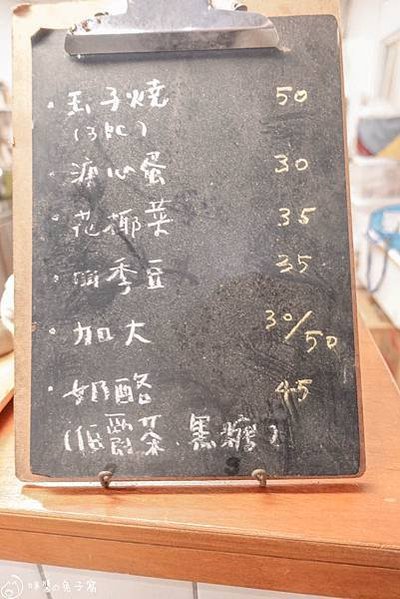 ・玉子燒 50
(3pc)
・溏心蛋 30
・花椰菜 35
・四季豆 35
・加大 30/50
・奶酪 45
(伯爵茶、黑糖)